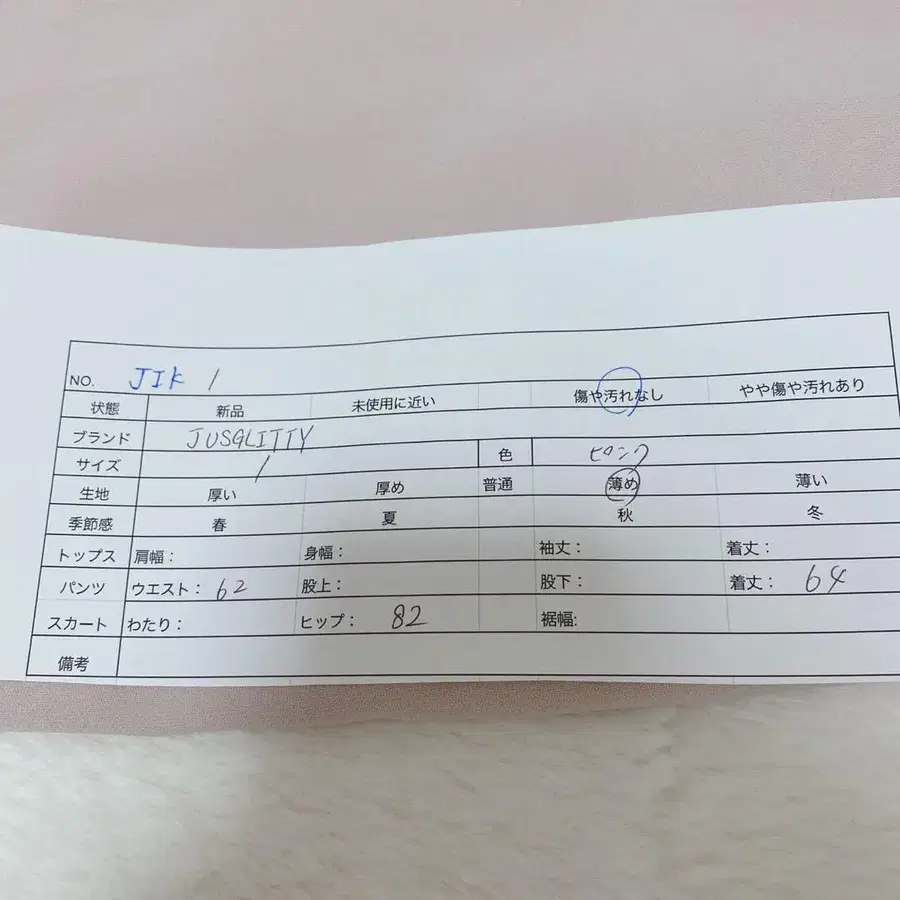 NO. JIK 1
状態 新品 未使用に近い 傷や汚れなし やや傷や汚れあり
ブランド JUSGLITTY
サイズ 1 色 ピンク
生地 厚い 厚め 普通 薄め 薄い
季節感 春 夏 秋 冬
トップス 肩幅： 身幅： 袖丈： 着丈：
パンツ ウエスト： 62 股上： 股下： 着丈： 64
スカート わたり： ヒップ： 82 裾幅:
備考